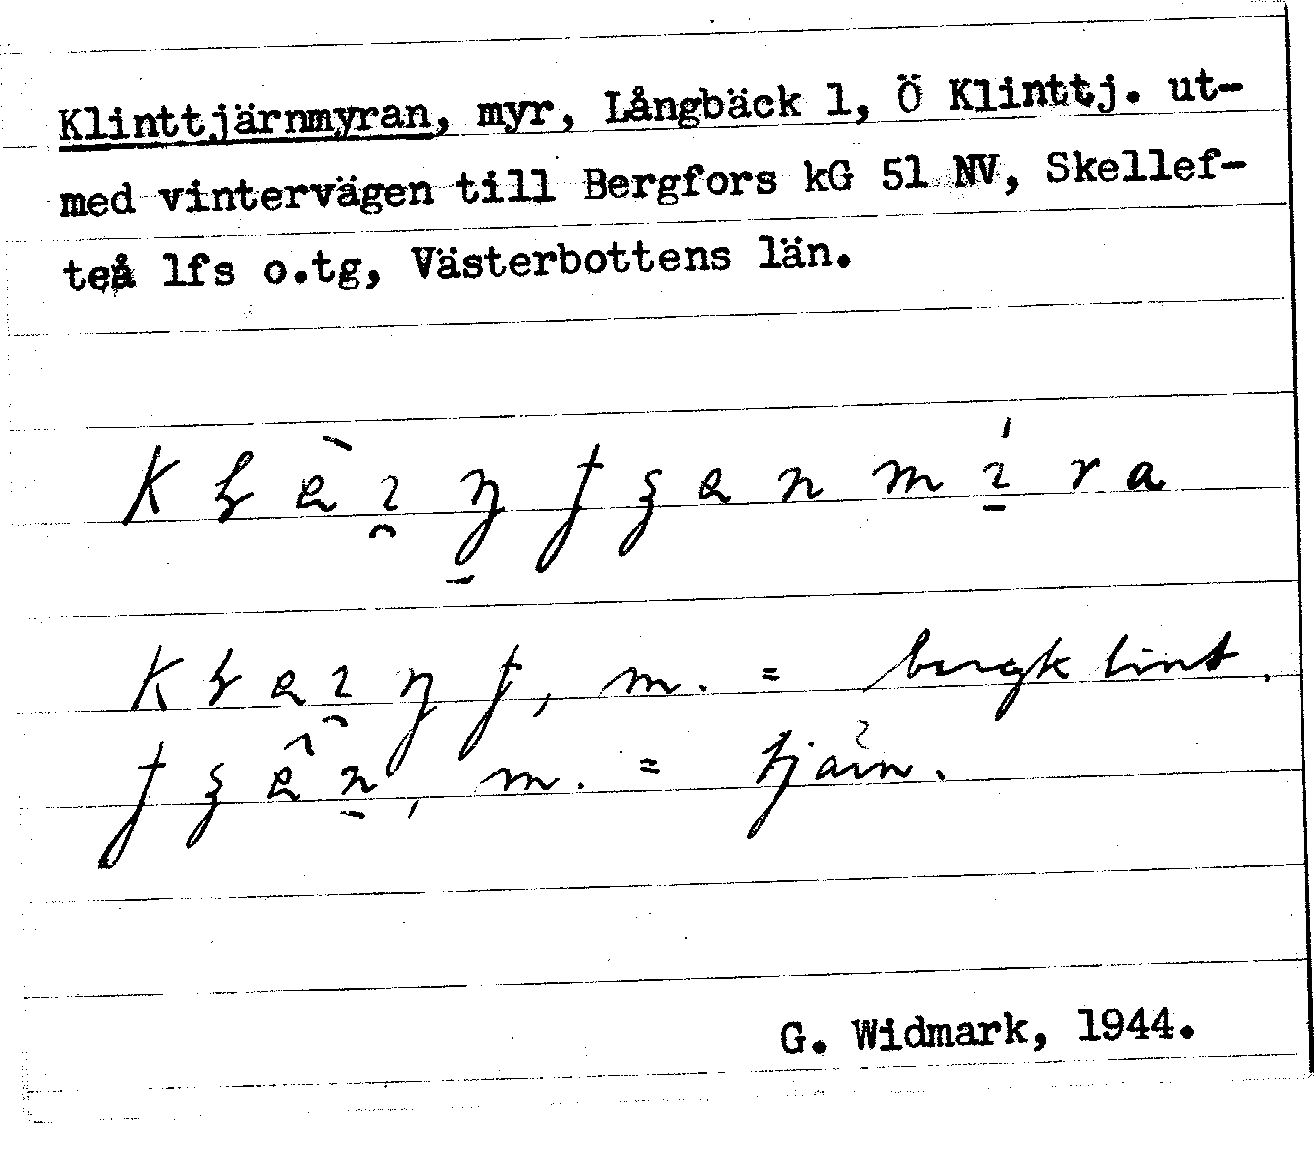 Klinttjärnmyran, myr, Långbäck 1, Ö Klinttj. ut-
med vintervägen till Bergfors kG 51 NV, Skellef-
teå lfs o.tg, Västerbottens län.
m. = bergklint.
m. = tjärn.
G. Widmark, 1944.